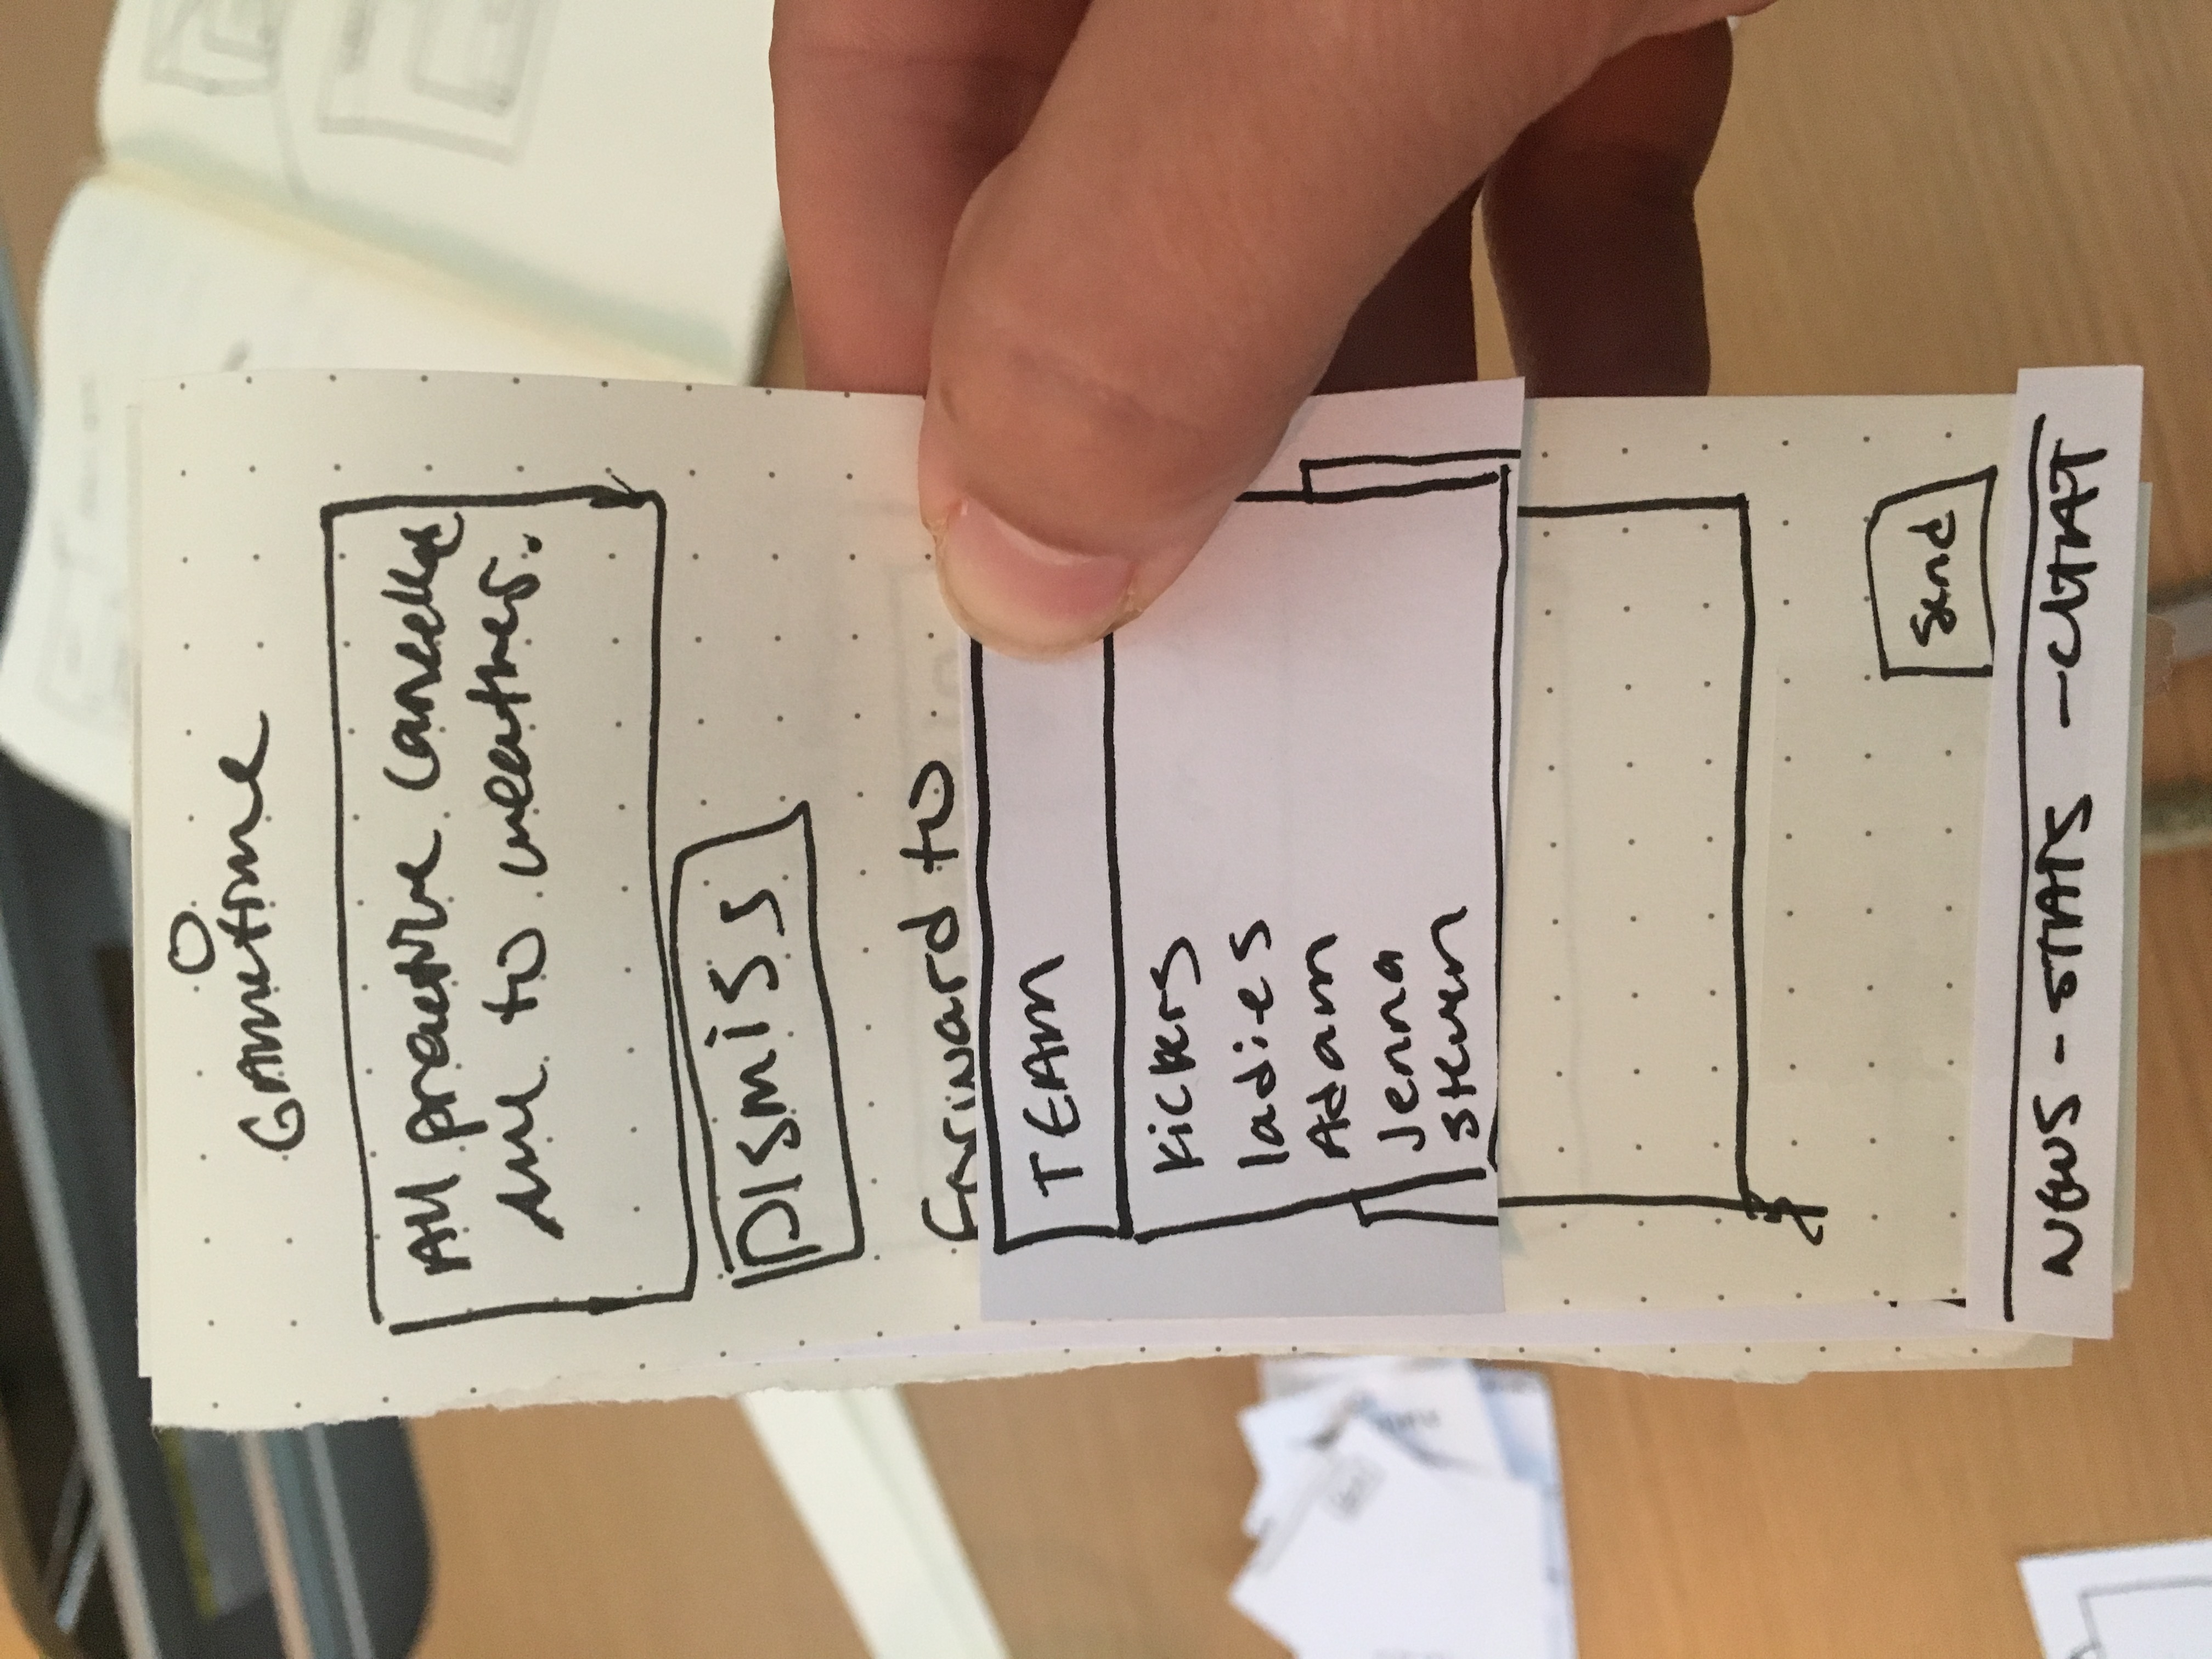 Gametime
All practice cancelled
due to weather.
DISMISS
Forward to
TEAM
Kickers
ladies
Adam
Jenna
Steven
Send
NEWS - STATS - CHAT